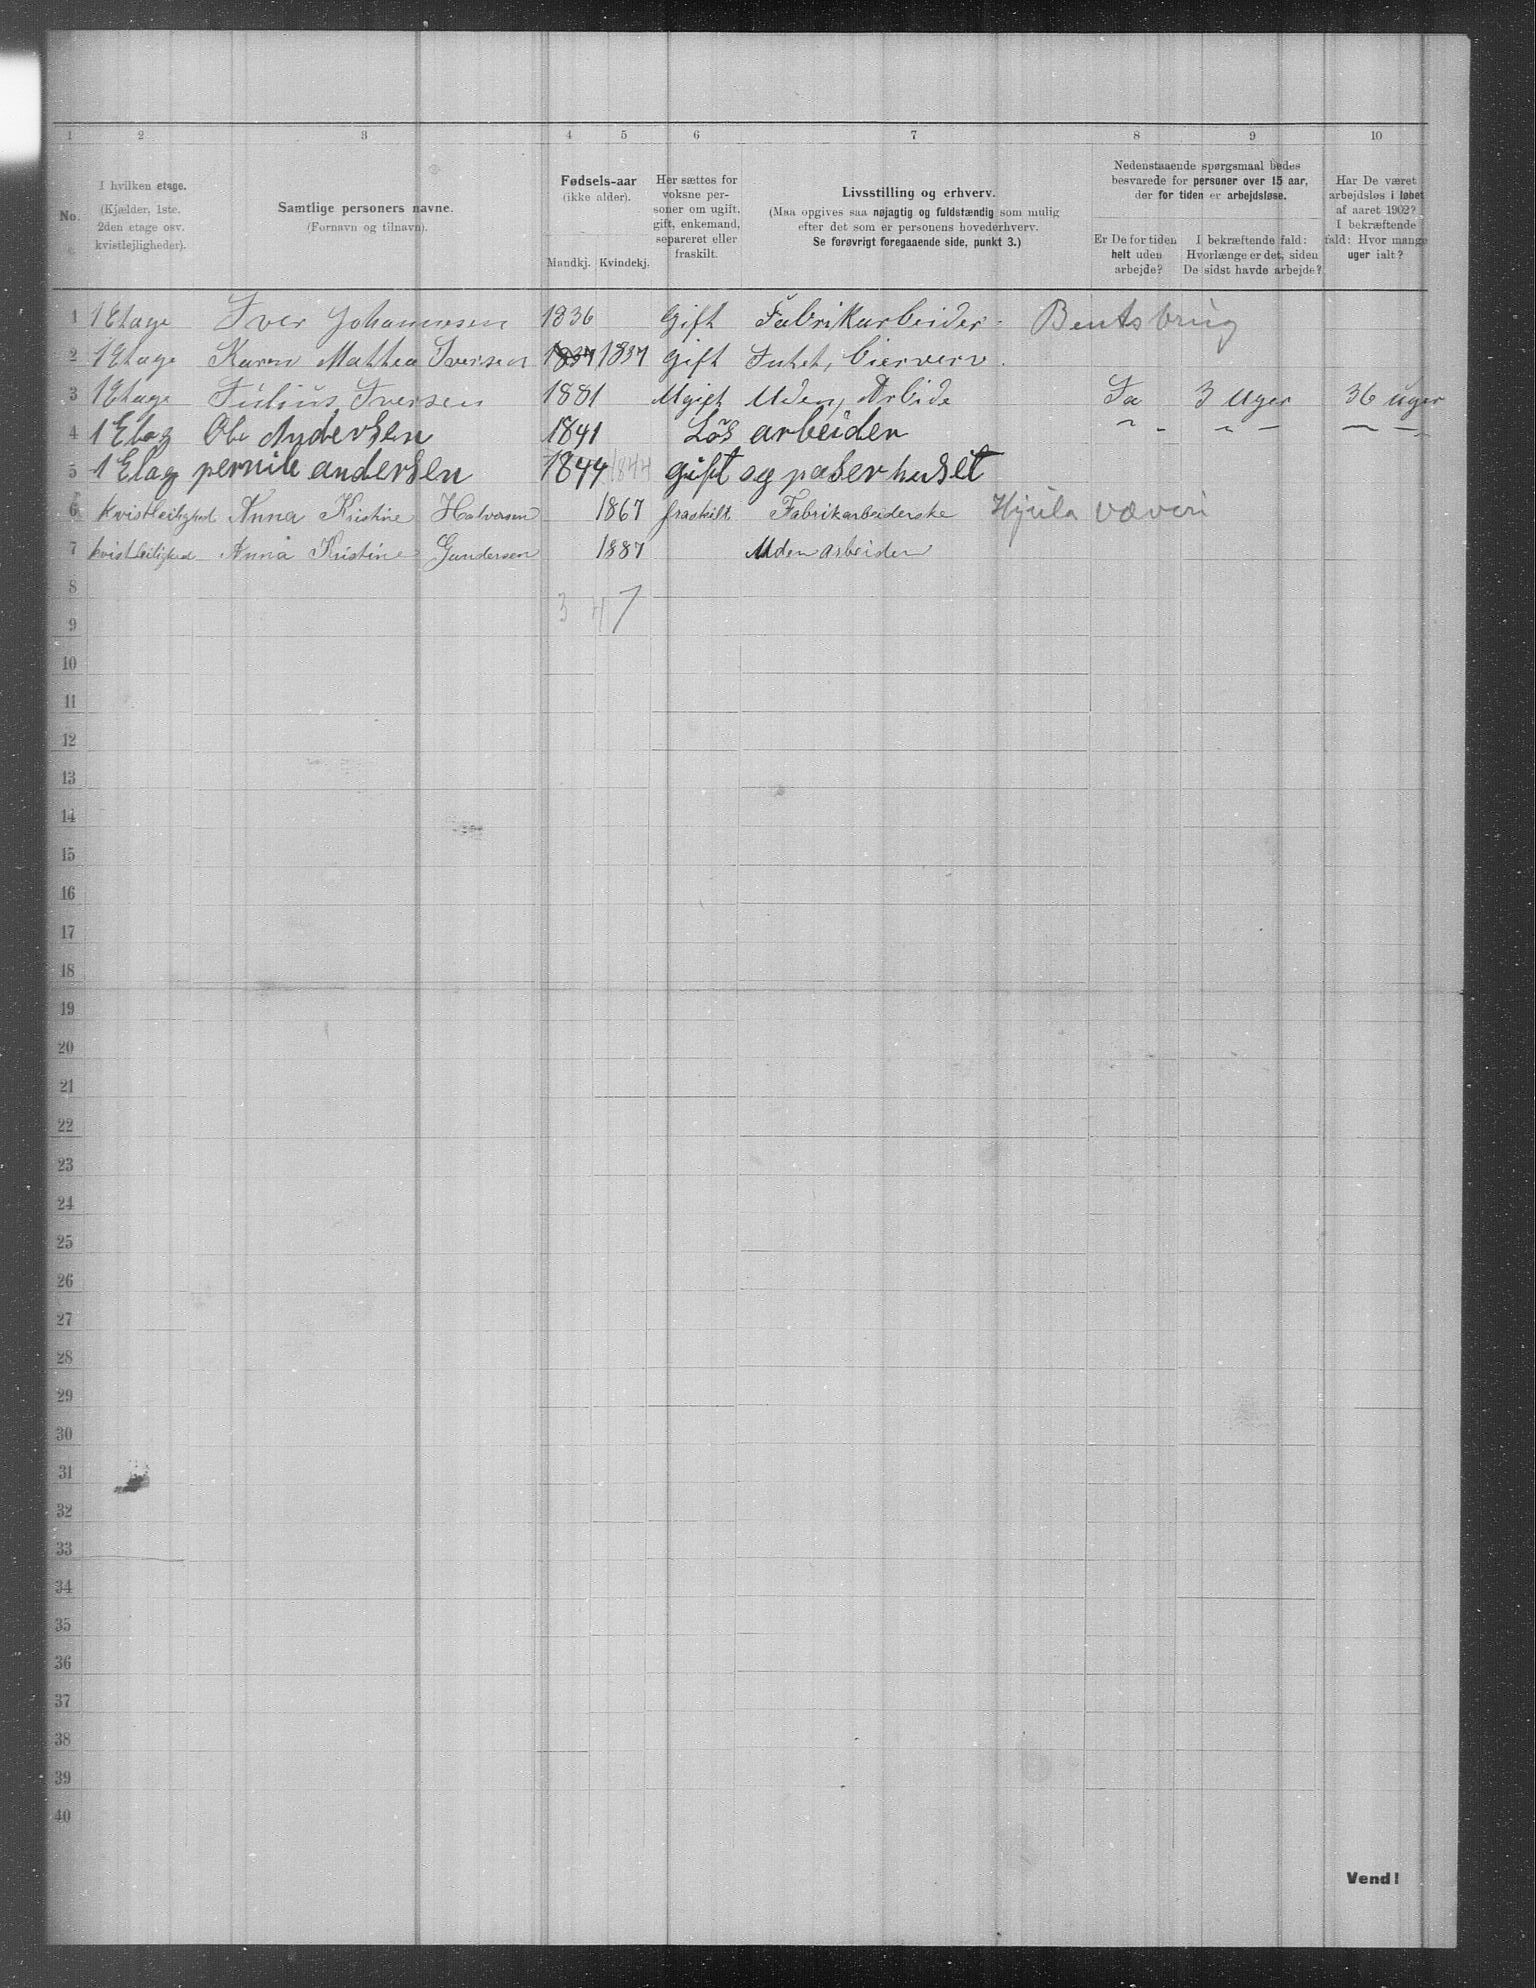 1 2 3 4 5 6 7 8 9 10
No. I hvilken etage. (Kjælder, 1ste. 2den etage osv. kvistlejligheder).
Samtlige personers navne. (Fornavn og tilnavn).
Fødsels-aar (ikke alder). Mandkj. Kvindekj.
Her sættes for voksne personer om ugift, gift, enkemand, separeret eller fraskilt.
Livsstilling og erhverv. (Maa opgives saa nøjagtig og fuldstændig som mulig efter det som er personens hovederhverv. Se forøvrigt foregaaende side, punkt 3.)
Nedenstaaende spørgsmaal bedes besvarede for personer over 15 aar, der for tiden er arbejdsløse.
Er De for tiden helt uden arbejde?
I bekræftende fald: Hvorlænge er det, siden De sidst havde arbejde?
Har De været arbejdsløs i løbet af aaret 1902? I bekræftende fald: Hvor mange uger ialt?
1 1 Etage Iver Johannesen 1836 Gift Fabrikarbeider. Bentsbrug
2 1 Etage Karen Mathea Iversen 1837 1837 Gift Intet,
3 1 Etage Julius Iversen 1881 Ugift Uden, Arbide Ja 3 Uger 36 uger
4 1 Etag Ole Andersen 1841 Løs arbeider " - - " - - " -
5 1 Etag pernile andersen 1844 1844 gift og paser huset
6 kvistleilighed Anna Kristine Halvorsen 1867 fraskilt Fabrikarbeiderske Hjula væveri
7 kvistleilighed Anna Kristine Gundersen 1887 Uden arbeider
8
3 4 7
9
10
11
12
13
14
15
16
17
18
19
20
21
22
23
24
25
26
27
28
29
30
31
32
33
34
35
36
37
38
39
40
Vend!